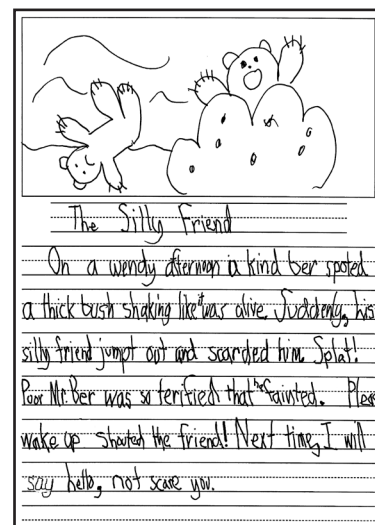 The Silly Friend
On a wendy afternoon a kind ber spoted
a thick bush shaking like it was alive. Suddenly, his
silly friend jumpt out and scarded him. Splat!
Poor Mr. Ber was so terified that he fainted. Pleas
wake up shouted the friend! Next time, I will
say hello, not scare you.